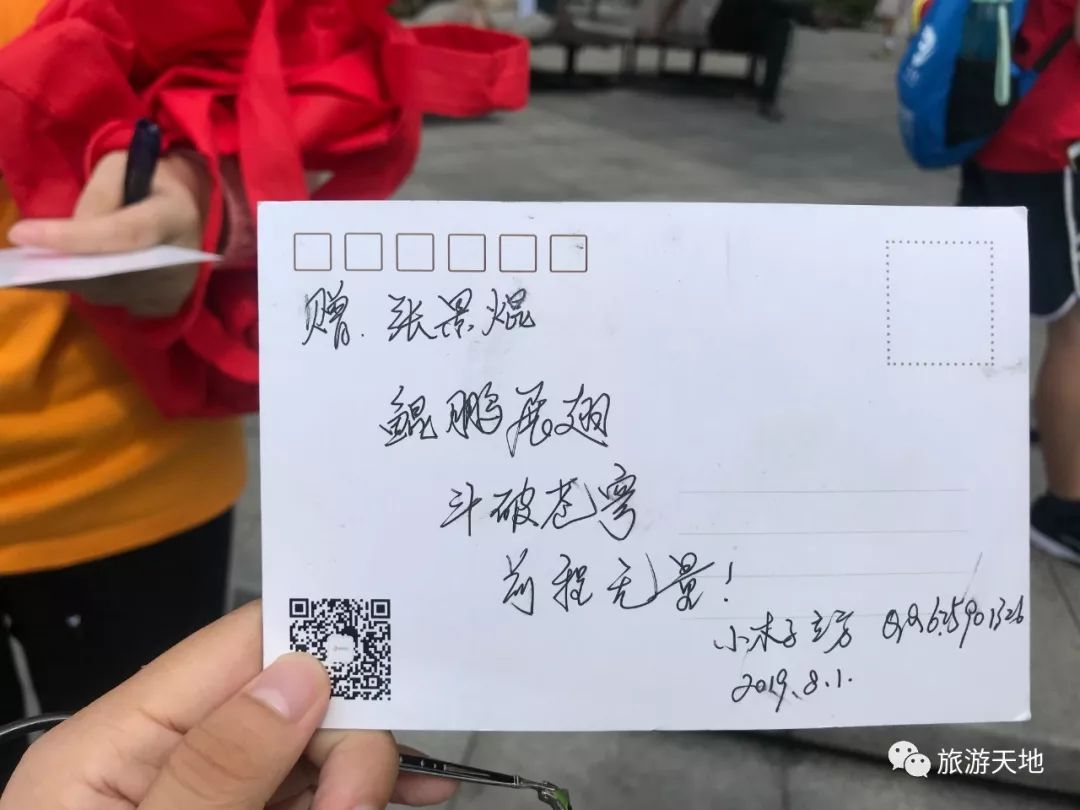 赠.张景焜
鲲鹏展翅
斗破苍穹
前程无量!
小木子 QQ625901326
2019.8.1.
旅游天地